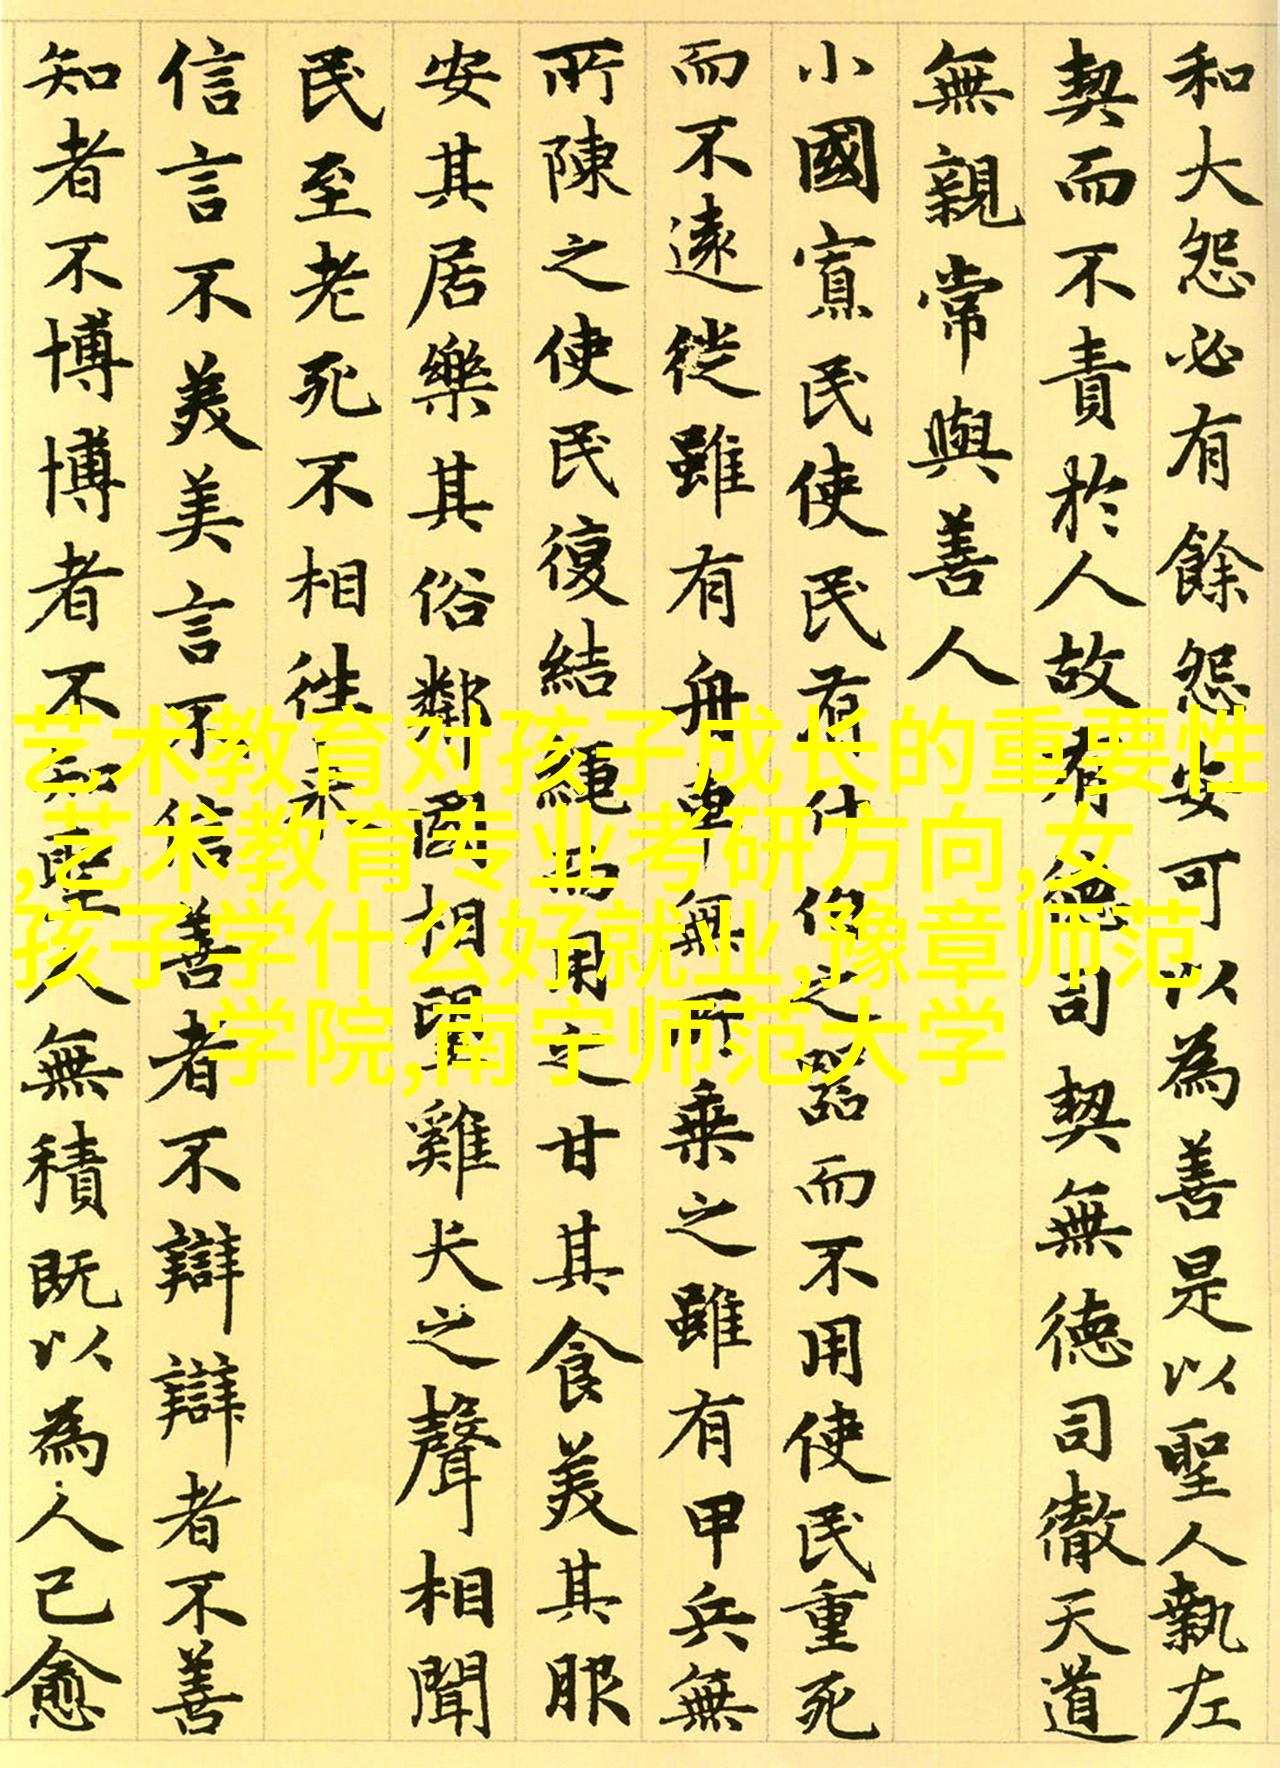 和大怨必有餘怨安可以為善是以聖人執左
契而不責於人故有德司契無德司徹天道
無親常與善人
小國寡民使民有什伯之器而不用使民重死
而不遠徙雖有舟車無所乗之雖有甲兵無
所陳之使民復結繩而用之甘其食美其服
安其居樂其俗鄰國相望雞犬之聲相聞
民至老死不相往来
信言不美美言不信善者不辯辯者不善
知者不博博者不知聖人無積既以為人己愈
艺术教育对孩子成长的重要性
,艺术教育专业考研方向,女
孩子学什么好就业,豫章师范
学院,南宁师范大学